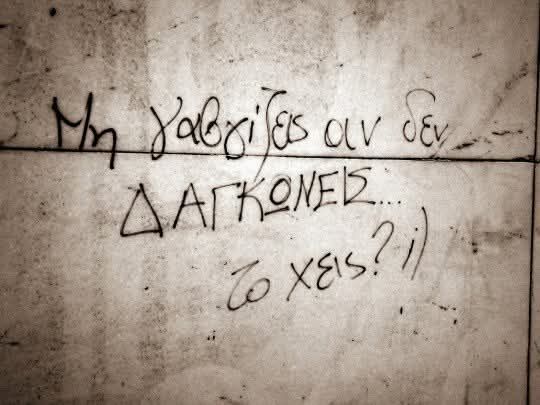 Μη γαβγίζεις αν δεν
ΔΑΓΚΩΝΕΙΣ...
το χεις? ;)